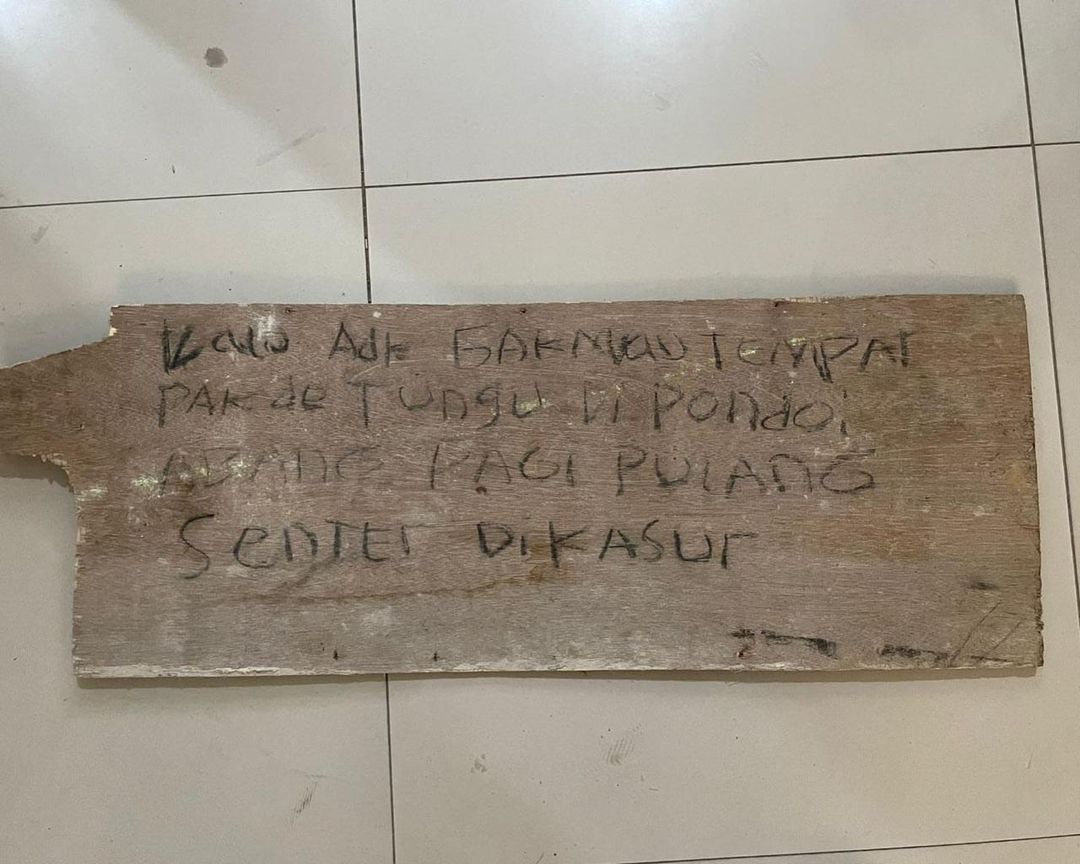 Kalo Adk GAKMau TEMPAT
PAKde TUngu Di Pondoi
ABANG PAGI PULANG
SenTER DiKASUr